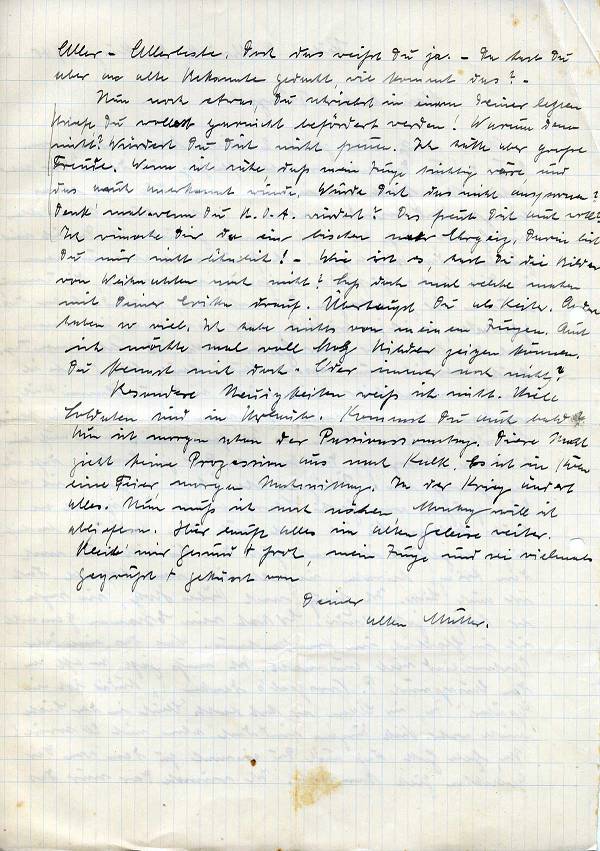 Aller – Allerbeste. Doch das weißt Du ja. – Da hast Du
aber an alte Bekannte gedacht, wie kommt das? –
Nun noch etwas, Du schriebst in einem Deiner letzten
Briefe Du wolltest garnicht befördert werden! Warum denn
nicht? Würdest Du Dich nicht freuen. Ich hätte aber große
Freude. Wenn ich sähe daß mein Junge tüchtig wäre und
das auch anerkannt würde. Würde Dich das nicht anspornen?
Denk mal wenn Du R.O.A. würdest? Das freut Dich auch
Ich wünschte Dir da ein bischen mehr Ehrgeiz. Darin bist
Du mir nicht ähnlich! – Wie ist es, hast Du die Bilder
von Weihnachten noch nicht? Laß doch mal welche machen
mit Deiner Erika drauf. Überhaupt Du als Reiter. Andre
haben so viel. Ich habe nichts von meinem Jungen. Auch
ich möchte mal voll Stolz Bilder zeigen können.
Du kennst mich doch. Oder immer noch nicht?
Besondere Neuigkeiten weiß ich nicht. Viele
Soldaten sind in Urlaub. Kommst Du auch bald?
Nun ist morgen schon der Passionssonntag. Diese
zieht keine Prozession aus nach Kalk. Es ist in
eine Feier, morgen Nachmittag. Ja der Krieg ändert
alles. Nun muß ich noch nähen Montag will ich
abliefern. Hier läuft alles im alten Geleise weiter.
Bleib mir gesund + froh, mein Junge und sei vielmals
gegrüßt + geküsst von
Deiner
alten Mutter.